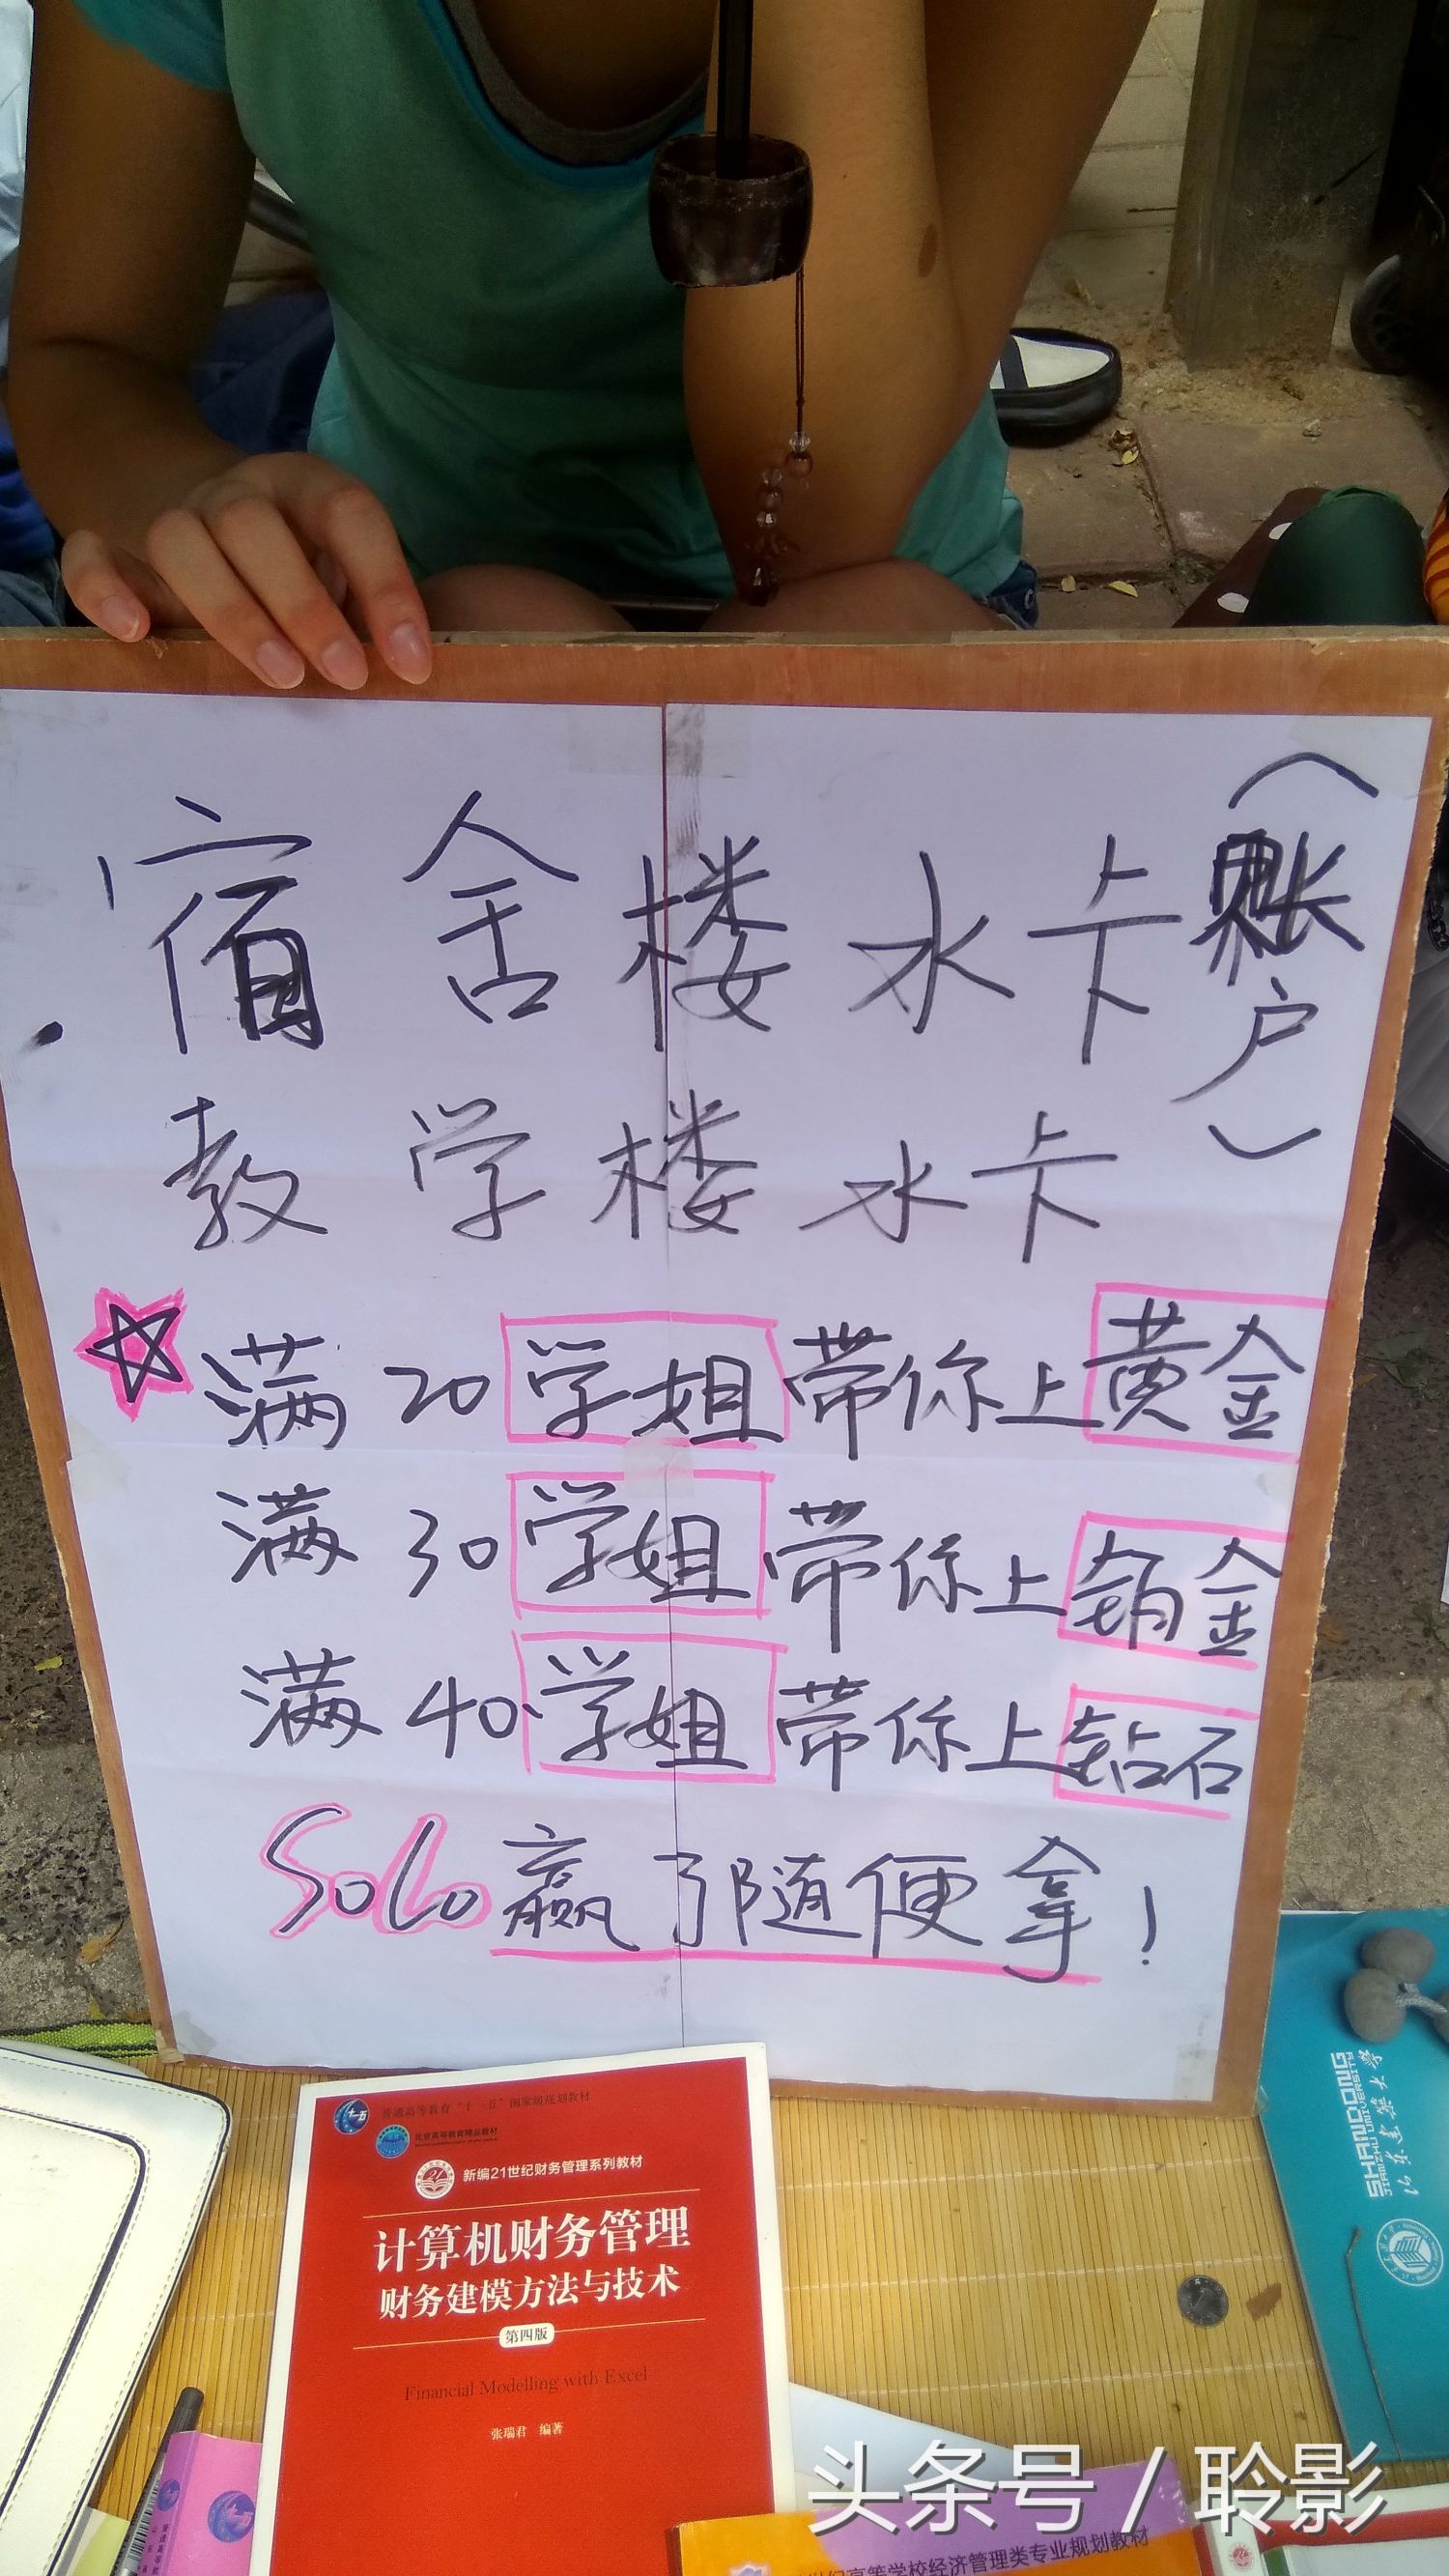 宿舍楼水卡(账户)
教学楼水卡
☆满20学姐带你上黄金
满30学姐带你上铂金
满40学姐带你上钻石
Solo赢了随便拿!
普通高等教育“十一五”国家级规划教材
北京高等教育精品教材
新编21世纪财务管理系列教材
计算机财务管理
财务建模方法与技术
第四版
Financial Modelling with Excel
张瑞君 编著
SHANDONG
JIANZHU UNIVERSITY
山东建筑大学
高等学校经济管理类专业规划教材
头条号 / 聆影